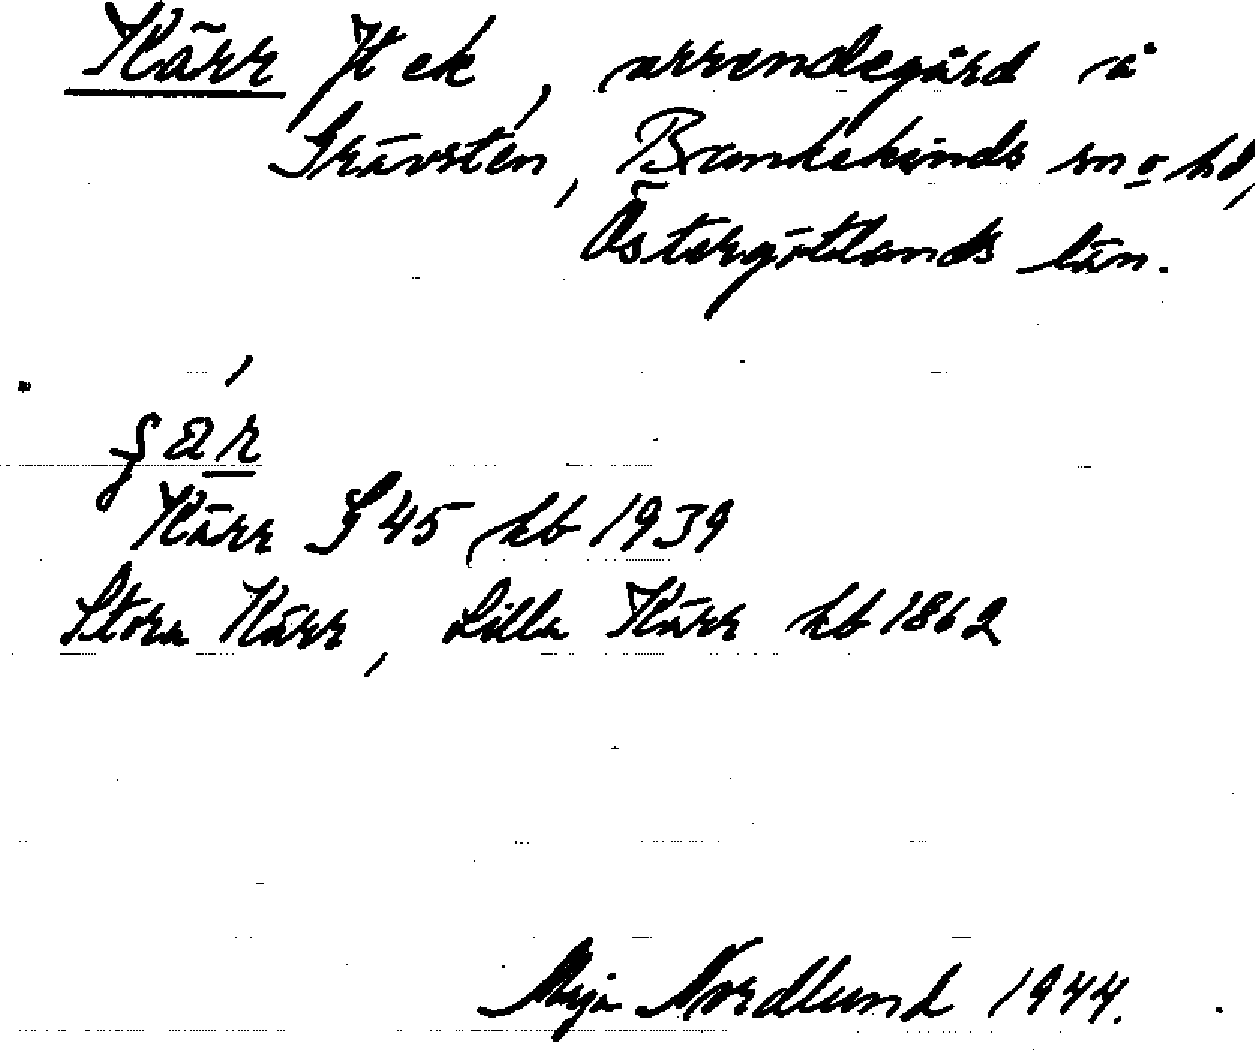 Kärr Hek, arrendegård å
Grävsten, Brankekinds sn o hd,
Östergötlands län.
ʃär
Kärr J 45, kb 1939
Stora Kärr, Lilla Kärr kb 1862
Maja Nordlund 1944.